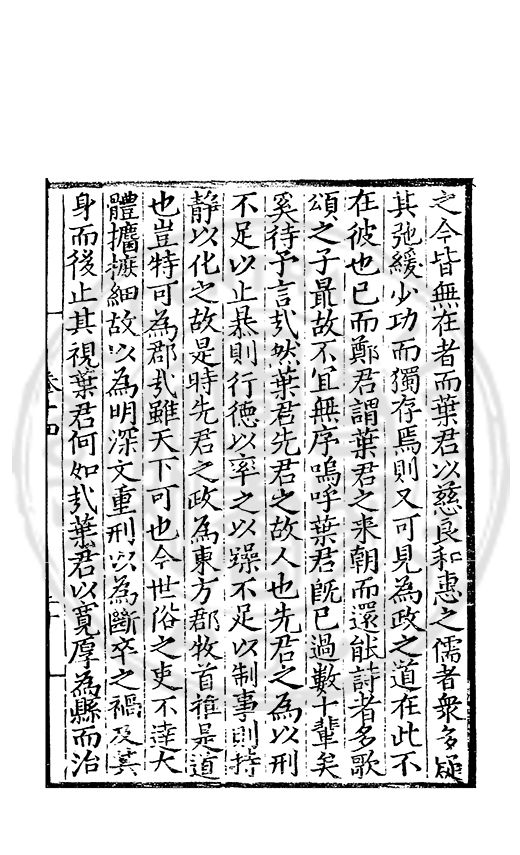 之今皆無在者而葉君以慈良和惠之儒者衆多疑
其弛緩少功而獨存焉則又可見為政之道在此不
在彼也已而鄭君謂葉君之来朝而還能詩者多歌
頌之子最故不冝無序嗚呼葉君既已過數十輩矣
奚待予言㢤然葉君先君之故人也先君之為以刑
不足以止㬥則行徳以率之以躁不足以制事則持
静以化之故是時先君之政為東方郡牧首雖是道
也豈特可為郡㢤雖天下可也今世俗之吏不逹大
體攟摭細故以為明深文重刑以為斷卒之禍及其
身而後止其視葉君何如㢤葉君以寛厚為縣而治
卷十四